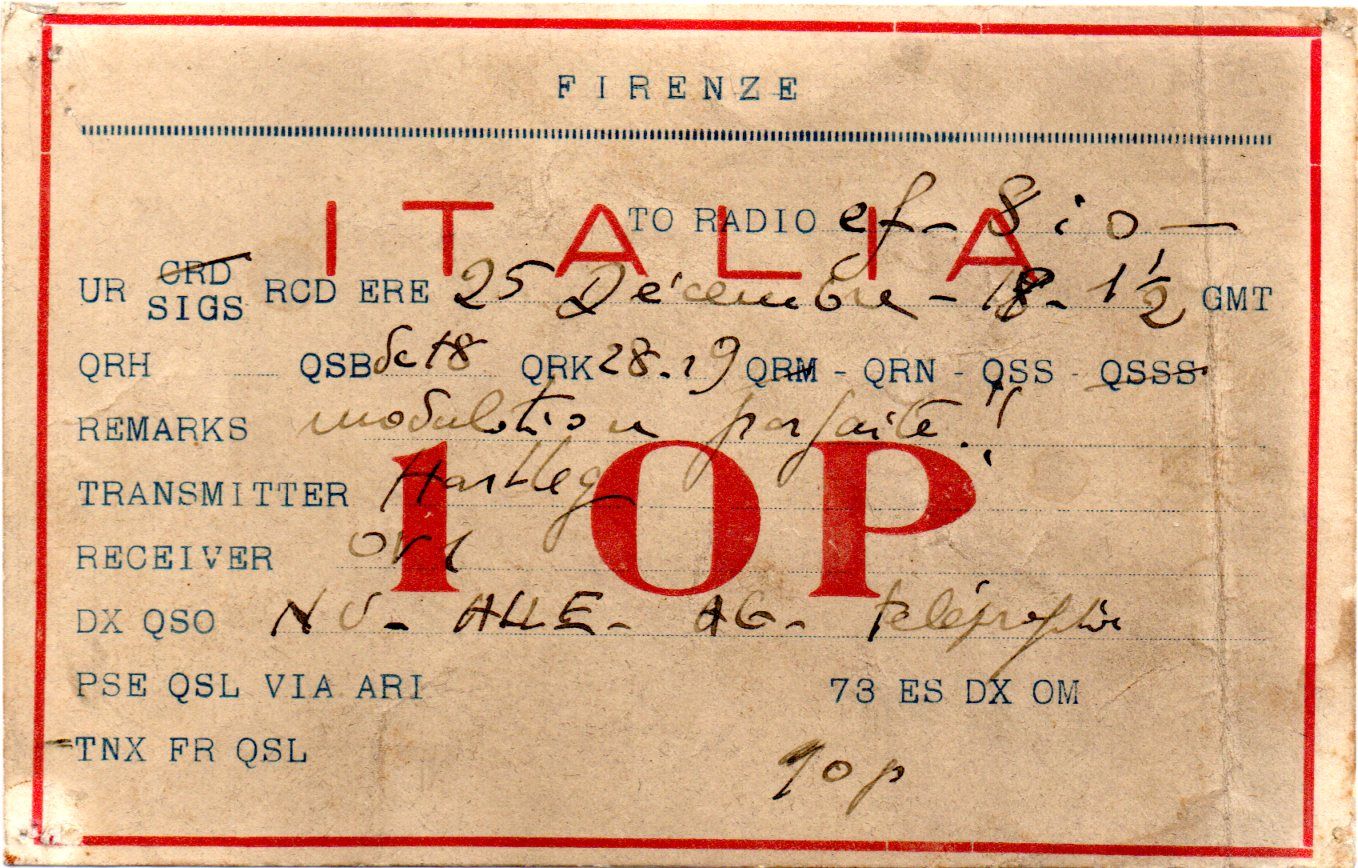 FIRENZE
ITALIA
TO RADIO ef - 8 i o -
UR CRD SIGS RCD ERE 25 Décembre - 18 - 1 1/2 GMT
QRH QSB QRK 28.29 QRM - QRN - QSS - QSSS
REMARKS modulation parfaite!!
1 OP
TRANSMITTER Hartley
RECEIVER
DX QSO NU - - AG -
PSE QSL VIA ARI 73 ES DX OM
TNX FR QSL
1 o p